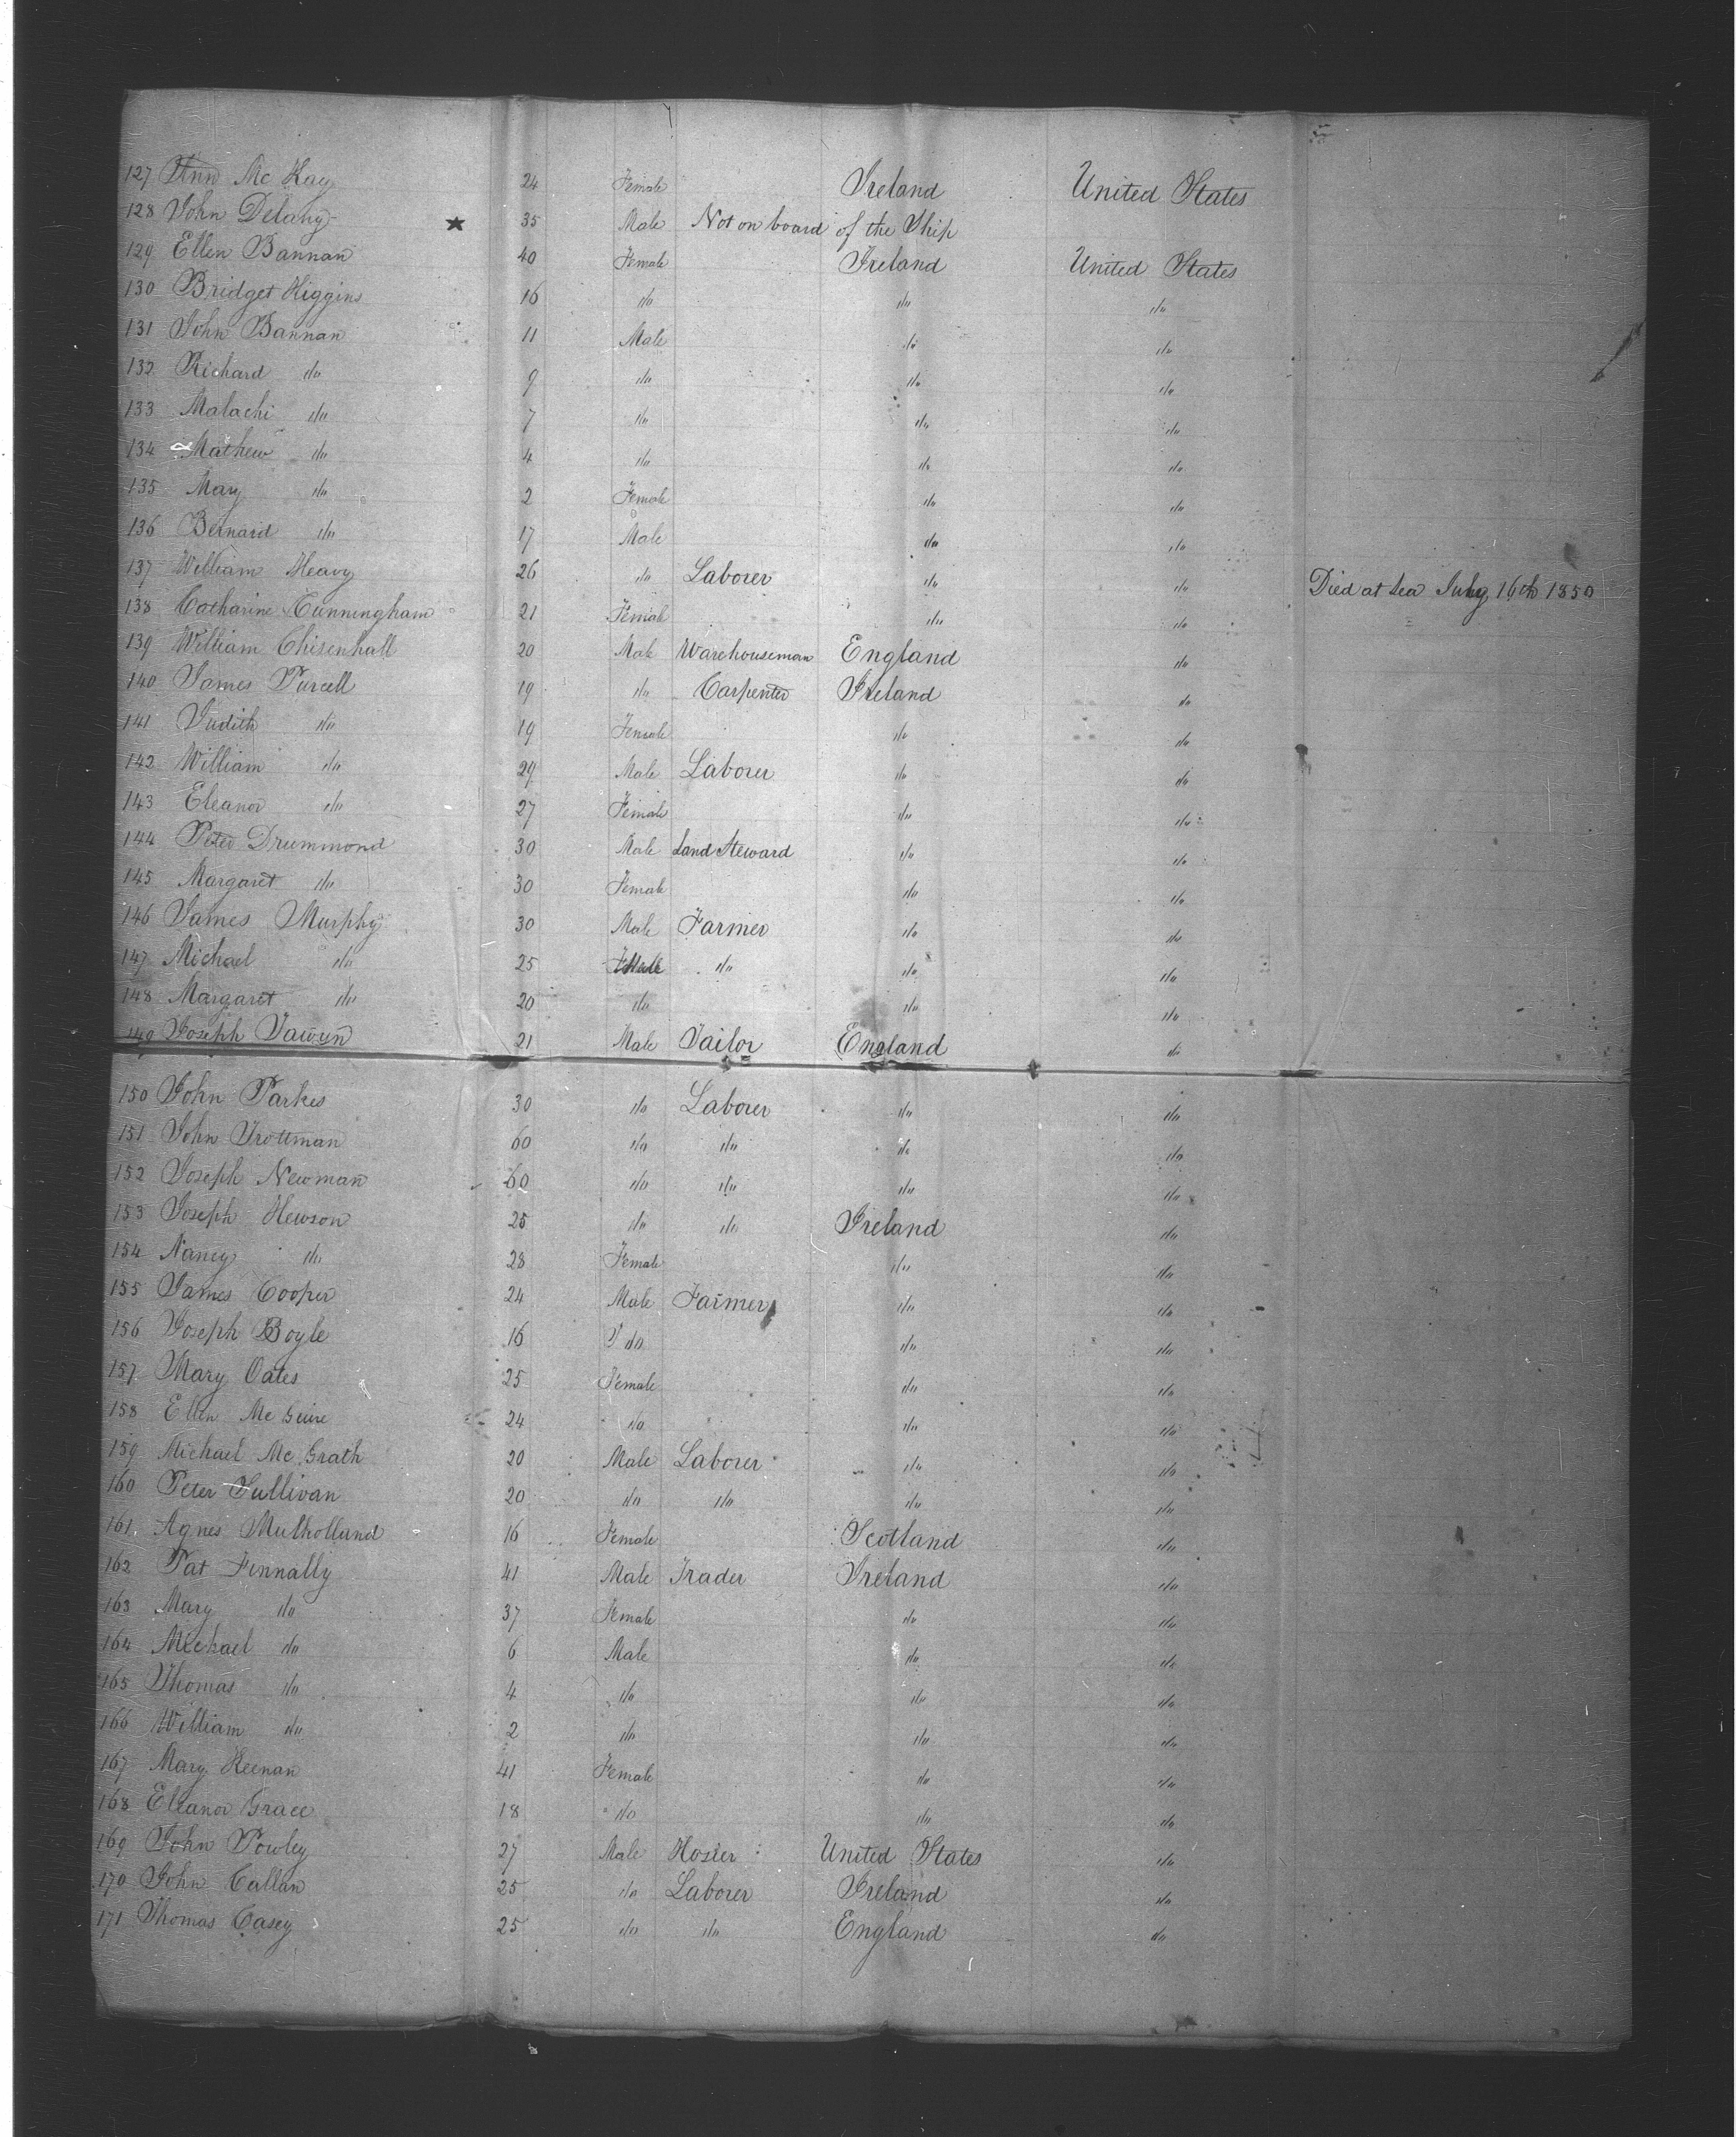 127 Ann Mc Kay 24 Female Ireland United States
128 John Delany ★ 35 Male Not on board of the Ship
129 Ellen Bannan 40 Female Ireland United States
130 Bridget Higgins 16 do do do
131 John Bannan 11 Male do do
132 Richard do 9 do do do
133 Malachi do 7 do do do
134 Mathew do 4 do do do
135 Mary do 2 Female do do
136 Bernard do 17 Male do do
137 William Heavy 26 do Laborer do do Died at sea July 16th 1850
138 Catharine Cunningham 21 Female do do
139 William Chisenhall 20 Male Warehouseman England do
140 James Purcell 19 do Carpenter Ireland do
141 Judith do 19 Female do do
142 William do 29 Male Laborer do do
143 Eleanor do 27 Female do do
144 Peter Drummond 30 Male Land Steward do do
145 Margaret do 30 Female do do
146 James Murphy 30 Male Farmer do do
147 Michael do 25 Male do do do
148 Margaret do 20 do do do
149 Joseph 21 Male Tailor England do
150 John Parkes 30 do Laborer do do
151 John Trottman 60 do do do do
152 Joseph Newman 60 do do do do
153 Joseph Hewson 25 do do Ireland do
154 Nancy do 28 Female do do
155 James Cooper 24 Male Farmer do do
156 Joseph Boyle 16 do do do
157 Mary Oates 25 Female do do
158 Ellen Mc Guire 24 do do do
159 Michael Mc Grath 20 Male Laborer do do
160 Peter Sullivan 20 do do do do
161 Agnes Mulholland 16 Female Scotland do
162 Pat Finnally 41 Male Trader Ireland do
163 Mary do 37 Female do do
164 Michael do 6 Male do do
165 Thomas do 4 do do do
166 William do 2 do do do
167 Mary Keenan 41 Female do do
168 Eleanor Grace 18 do do do
169 John Powley 27 Male Hosier United States do
170 John Callan 25 do Laborer Ireland do
171 Thomas Casey 25 do do England do